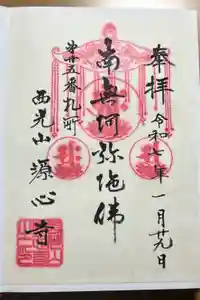 奉拝
令和七年一月廿九日
南無阿弥陀佛
第廿五番札所
西光山源心寺